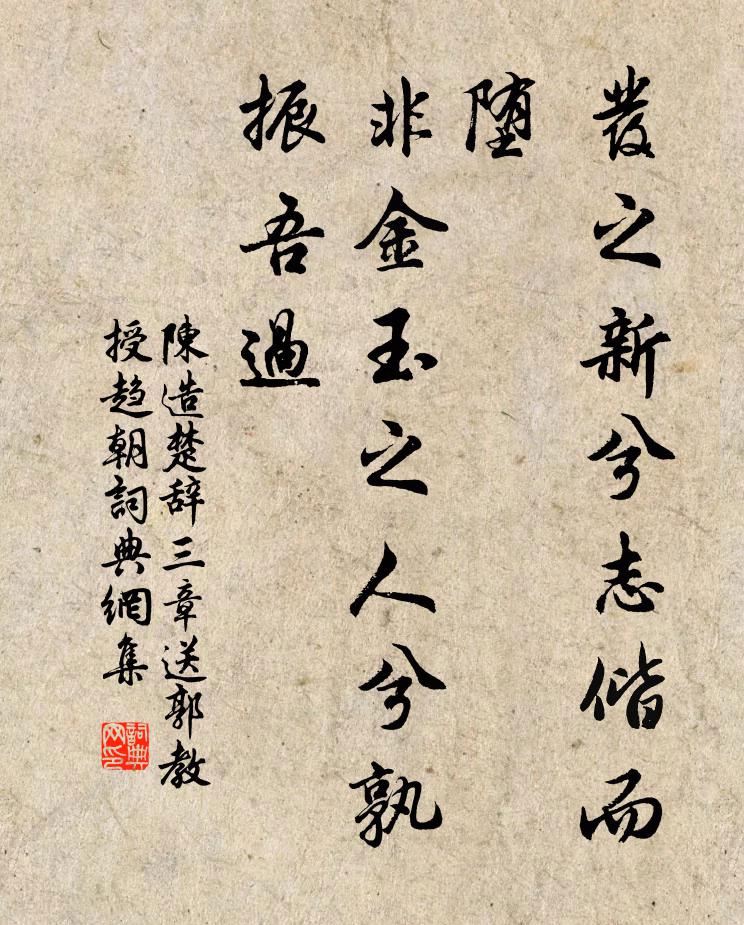 發之新兮志偕而
堕
非金玉之人兮孰
振吾過
陳造楚辞三章送郭教
授趋朝詞典網集
詞典网印